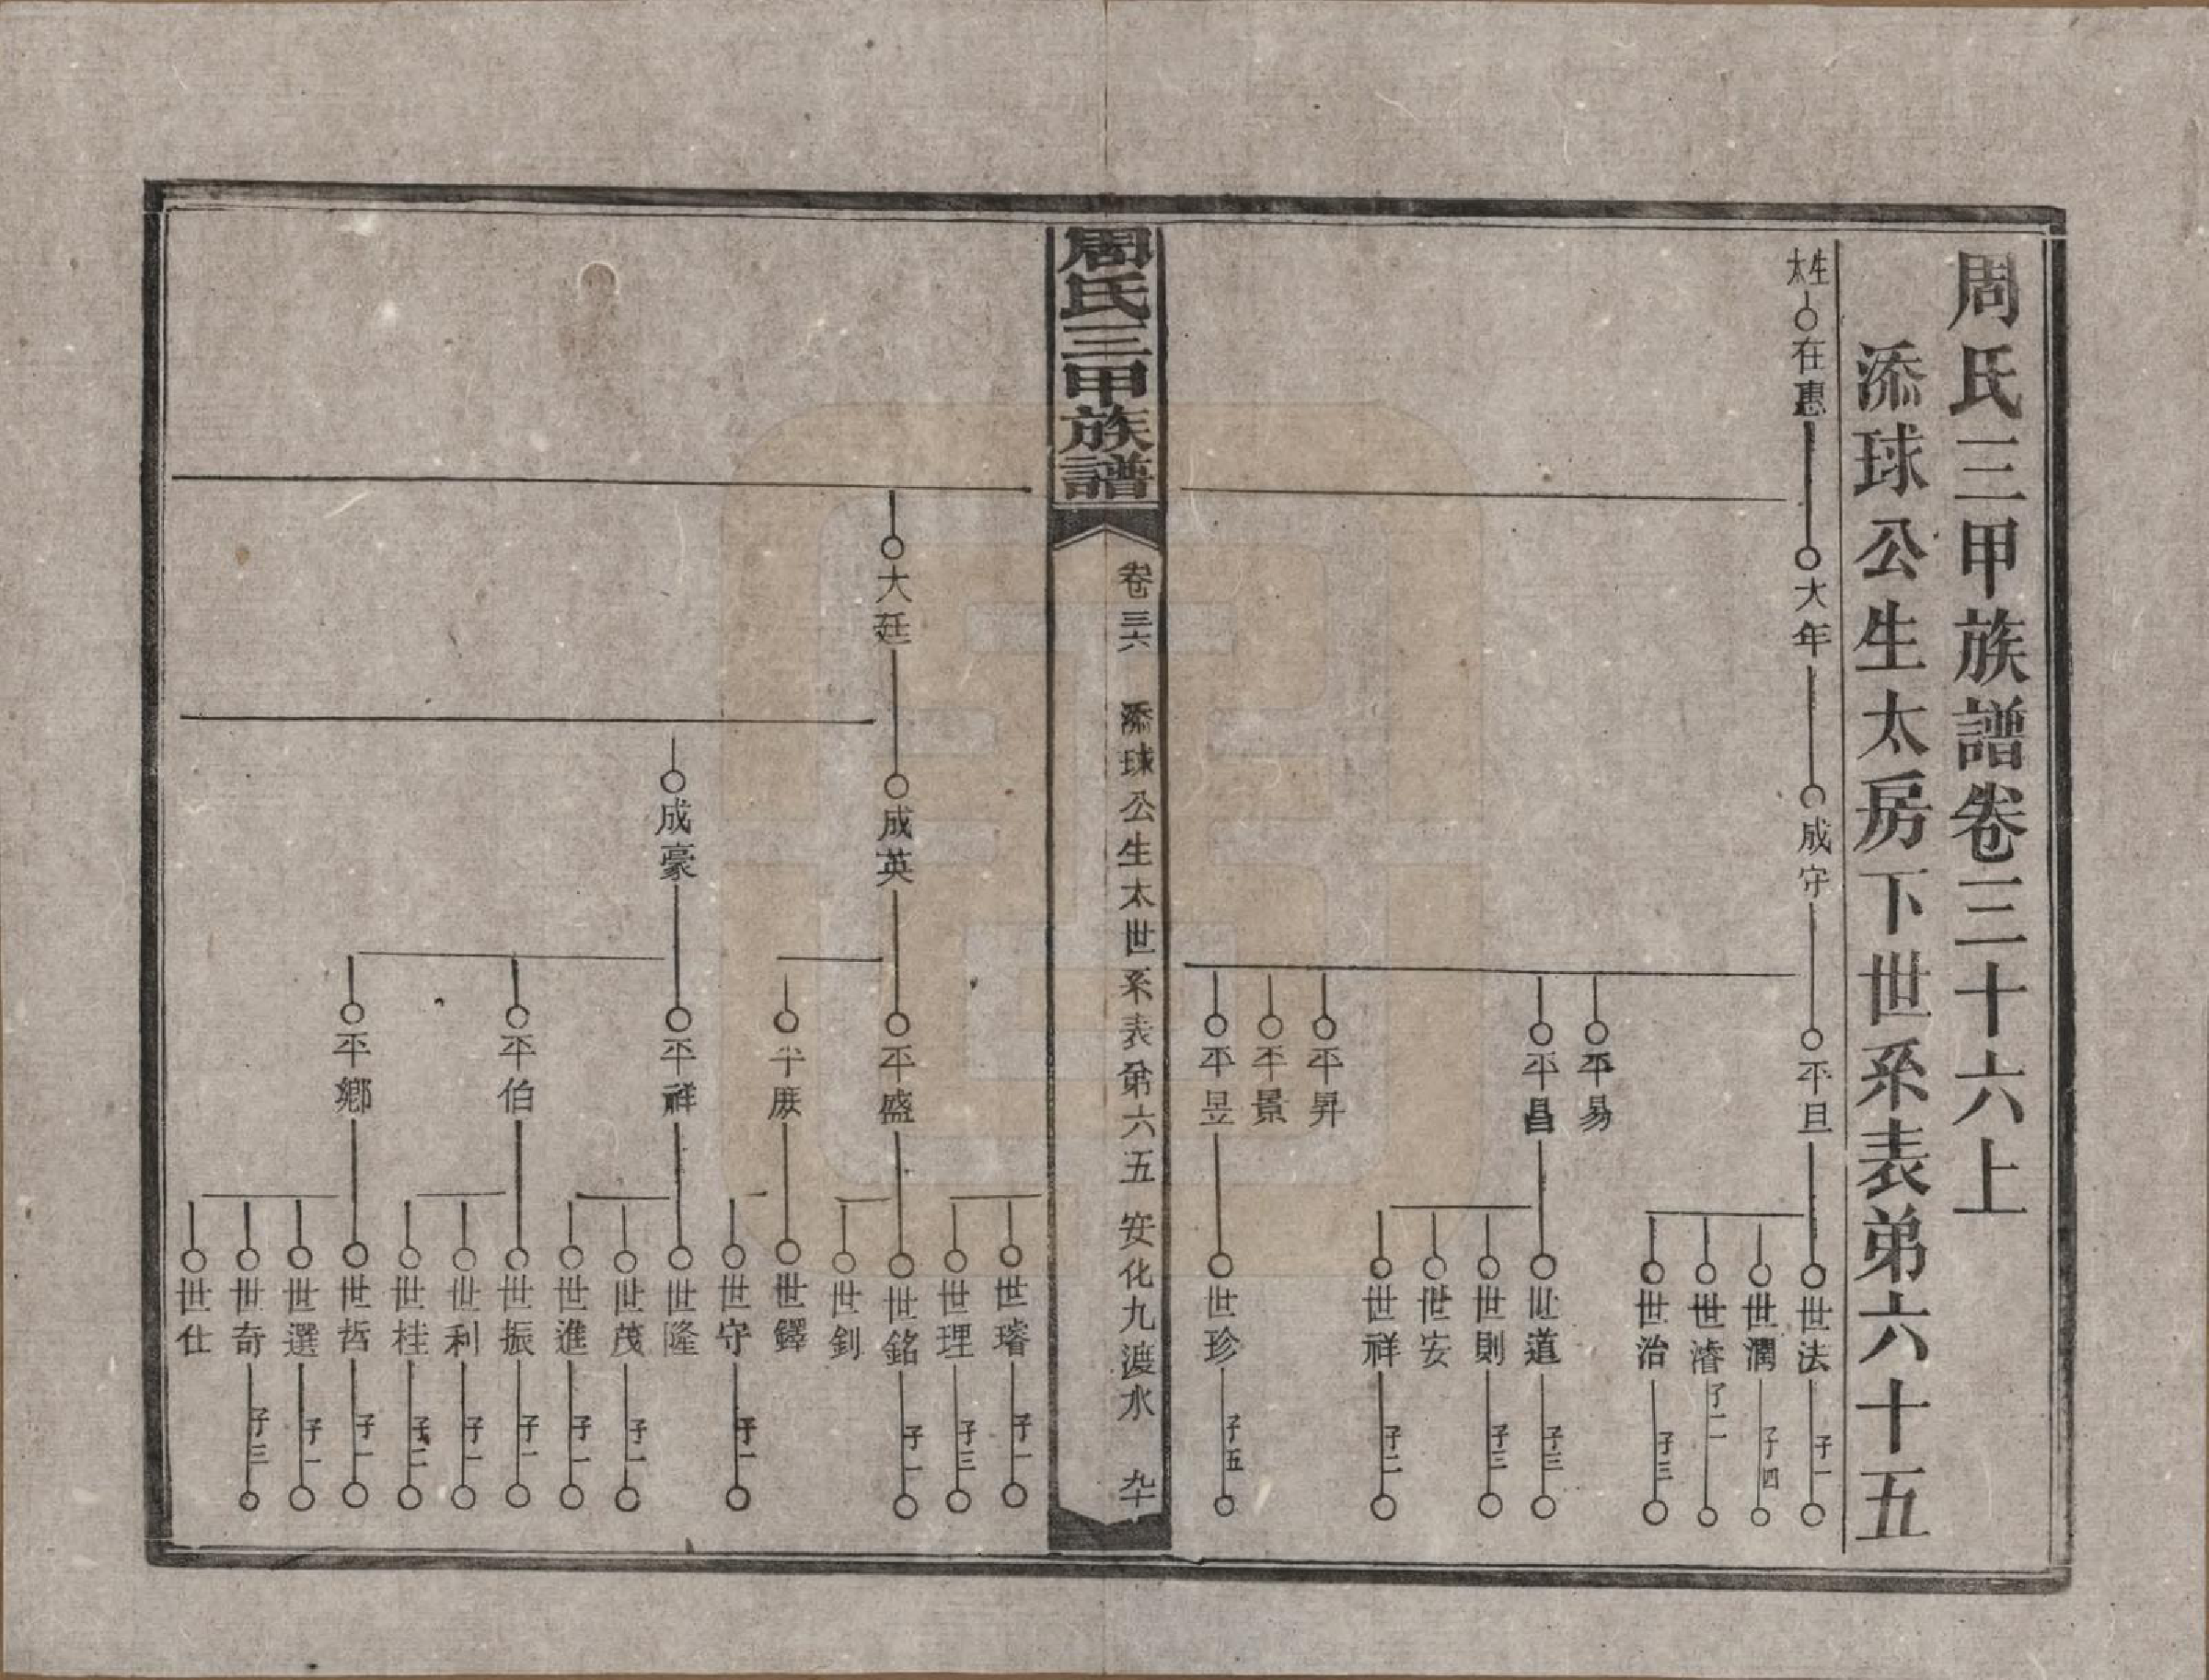 周氏三甲族譜卷三十六上
添球公生太房下世系表弟六十五
生太
在惠
大年
成守
平旦
世法 子一
世潤 子四
世濬 子二
世治 子三
平易
平昌
世道 子三
世則 子三
世安
世祥 子二
平昇
平景
平昱
世珍 子五
周氏三甲族譜
卷三六 添球公生太世系表弟六五 安化九渡水 九十
世璿 子一
世理 子三
大廷
成英
平盛
世銘 子一
世釗
世鐸
世守 子一
成豪
平祥
世隆
世茂 子一
世進 子一
平伯
世振 子一
世利 子一
世桂 子二
平鄉
世哲 子一
世選 子一
世奇 子三
世仕